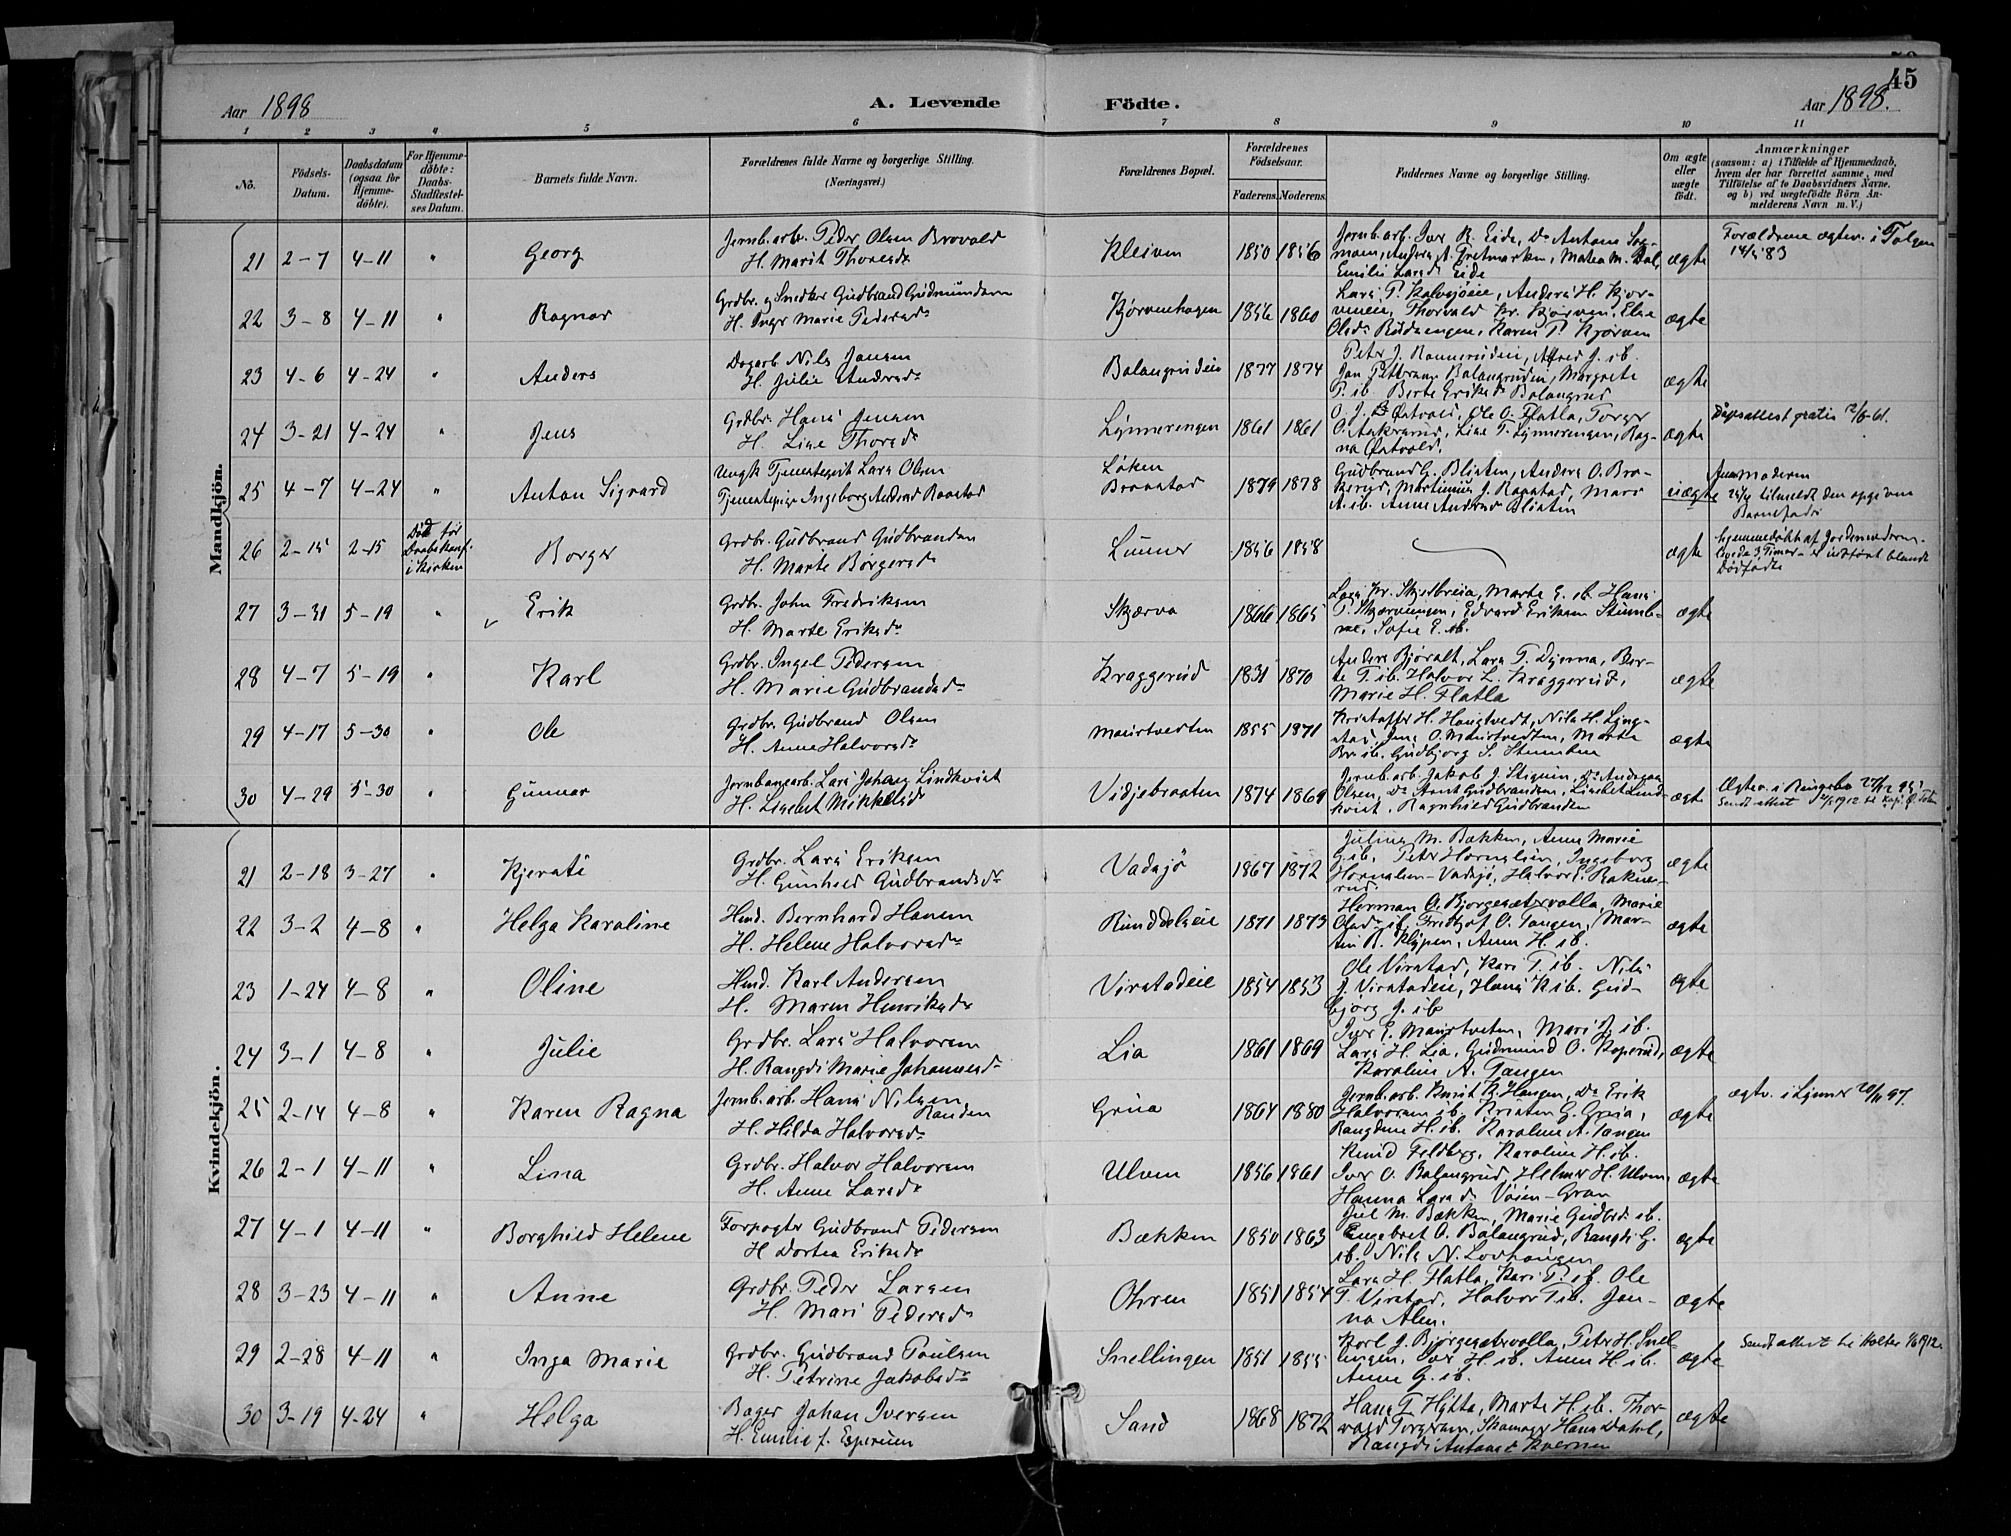 45
Aar 1898
A. Levende Födte.
Aar 1898.
1 2 3 4 5 6 7 8 9 10 11
No.
Födsels-Datum.
Daabsdatum (ogsaa for Hjemme-döbte).
For Hjemme-döbte: Daabs-Stadfæstel-ses Datum.
Barnets fulde Navn.
Forældrenes fulde Navne og borgerlige Stilling. (Næringsvei.)
Forældrenes Bopæl.
Forældrenes Födselsaar.
Faderens. Moderens.
Faddernes Navne og borgerlige Stilling.
Om ægte eller uægte födt.
Anmærkninger
(saasom: a) i Tilfælde af Hjemmedaab, hvem der har forrettet samme, med Tilföielse af to Daabsvidners Navne, og b) ved uægtefödte Börn An-melderens Navn m. V.)
Mandkjön.
21 2-7 4-11 " Georg
Jernb.arb. Peder Olsen Brovold
H. Marit Thoresdr
Kleiven 1850 1856
Jernb.arb. Iver R. Eide,
Emilie Larsdr Eide
ægte
Forældrene ægtev. i Tolgen
14/1 83
22 3-8 4-11 " Ragnar
Grdbr. og Snedker Gudbrand Gudmundsen
H. Inger Marie Pedersdr
Kjørvenhagen 1856 1860
Thorvald Kr. Kjørven, Else
Karen P. Kjørven
ægte
23 4-6 4-24 " Anders
Dagarb. Nils Jensen
H. Julie Andersdr
Balangrudeie 1877 1874
Balangrudeie, Margrete
P. ib. Berte Eriksdr Balangrud
ægte
24 3-21 4-24 " Jens
Grdbr. Hans Jensen
H. Lise Thorsdr
Lynnerengen 1861 1861
Ole O. Flatla, Torger
Lise T. Lynnerengen, Rag-
na Østvold.
ægte
Dåpsattest gratis 12/6-61.
25 4-7 4-24 " Anton Sigvard
Ungk. Tjenestegut Lars Olsen
Tjenestepige Ingeborg Andersdr Raastad
Løken
1879 1878
Gudbrand G. Blisten, Anders O. Bra-
kerud, Martinius J. Raastad, Mari
A. ib. Anne Andersdr Blisten
uægte
Moderen
tilmeldt den opgivne
Barnefader
26 2-15 2-15
Død før
Daabskonf.
i Kirken
Borger
Grdbr. Gudbrand Gudbrandsen
H. Marte Børgersdr
Lunner 1856 1858
ægte
Hjemmedøbt af Jordemoderen.
Levede 3 Timer - er indført blandt
Dødfødte
27 3-31 5-19 " Erik
Grdbr. John Fredriksen
H. Marte Eriksdr
Skjærva 1866 1865
Lars Kr. Skjelbreia, Marte E. ib. Hans
P. Skjærvungen, Edvard Eriksen Stumb-
ne, Sofie E. ib.
ægte
28 4-7 5-19 " Karl
Grdbr. Ingel Pedersen
H. Marie Gudbrandsdr
Kraggerud 1831 1870
Anders Bjøralt, Lars T. Dynna, Ber-
te T. ib. Halvor L. Kraggerud,
Marie H. Flatla
ægte
29 4-17 5-30 " Ole
Grdbr. Gudbrand Olsen
H. Anne Halvorsdr
Maurtvedten 1855 1871
Kristoffer H. Haugtvedt, Nils H. Ljøg-
stad, Jens O. Maurtvedten, Marte
ib. Gudbjørg S. Stumbne
ægte
30 4-29 5-30 " Gunnar
Jernbanearb. Lars Johans. Lindkvist
H. Lisebet Mikkelsdr
Vidjebraaten 1874 1869
Jernb.arb. Jakob J. Stiguim,
Olsen, Do Arnt Gudbrandsen, Lisebet Lind-
kvist, Ragnhild Gudbrandsen
ægte
Ægtev. i Ringebo 27/12 95
Kvindekjön.
21 2-18 3-27 " Kjersti
Grdbr. Lars Eriksen
H. Gunhild Gudbrandsdr
Vadsjø 1867 1872
Julius M. Bækken, Anne Marie
G. ib. Peter Hornslien, Ingeborg
Hornslien-Vadsjø, Halvor E. Rakne-
rud.
ægte
22 3-2 4-8 " Helga Karoline
Hmd. Bernhard Hansen
H. Helene Halvorsdr
Runddelseie 1871 1873
Herman O. Bjørgesætervolla, Marie
Olsdr ib. Fredtjof O. Tangen, Mar-
tin R. Klypen, Anne H. ib.
ægte
23 1-24 4-8 " Oline
Hmd. Karl Andersen
H. Maren Henriksdr
Virstadeie 1854 1853
Ole Virstad, Kari T. ib. Nils
J. Virstadeie, Hans K. ib. Gud-
bjørg J. ib
ægte
24 3-1 4-8 " Julie
Grdbr. Lars Halvorsen
H. Rangdi Marie Johannesdr
Lia 1861 1869
Iver E. Maurtveten, Mari J. ib.
Lars H. Lia, Gudmund O. Koperud,
Karoline A. Tangen
ægte
25 2-14 4-8 " Karen Ragna
Jernb.arb. Hans Nilsen
Randen
H. Hilda Halvorsdr
Grua 1864 1880
Jernb.arb. Knut K. Haugen, Do Erik
Halvorsen ib. Kristen G. Grua,
Rangdine H. ib. Karoline A. Tangen
ægte
ægtv. i Lynner 20/11 97.
26 2-1 4-11 " Lina
Grdbr. Halvor Halvorsen
H. Anne Larsdr
Ulven 1856 1861
Knud Feldberg, Karoline H. ib.
Iver O. Balangrud, Helmer H. Ulven,
Hanna Larsdr Vøien-Gran
ægte
27 4-1 4-11 " Borghild Helene
Forpagter Gudbrand Pedersen
H. Dortea Eriksdr
Bækken 1850 1863
Juel M. Bækken, Marie Gudbrdr ib.
Engebret O. Balangrud, Rangdi G.
ib. Nils N. Lovhaugen
ægte
28 3-23 4-11 " Anne
Grdbr. Peder Larsen
H. Mari Pedersdr
Ohren 1851 1854
Lars H. Flatla, Kari P. ib. Ole
T. Virstad, Halvor T. ib. Jan-
na Alm.
ægte
29 2-28 4-11 " Inga Marie
Grdbr. Gudbrand Paulsen
H. Petrine Jakobsdr
Snellingen 1851 1855
Karl J. Bjørgesætervolla, Peter H. Snel-
lingen, Iver H. ib. Anne H. ib.
Anne G. ib.
ægte
Sendt attest
30 3-19 4-24 " Helga
Bager Johan Iversen
H. Emilie f. Espersen
Sand 1868 1872
Hans T. Hytta, Marte H. ib. Thor-
vald Torgersen, Skomager Hans Dahl,
Rangdi Antonsdr Kværnen
ægte